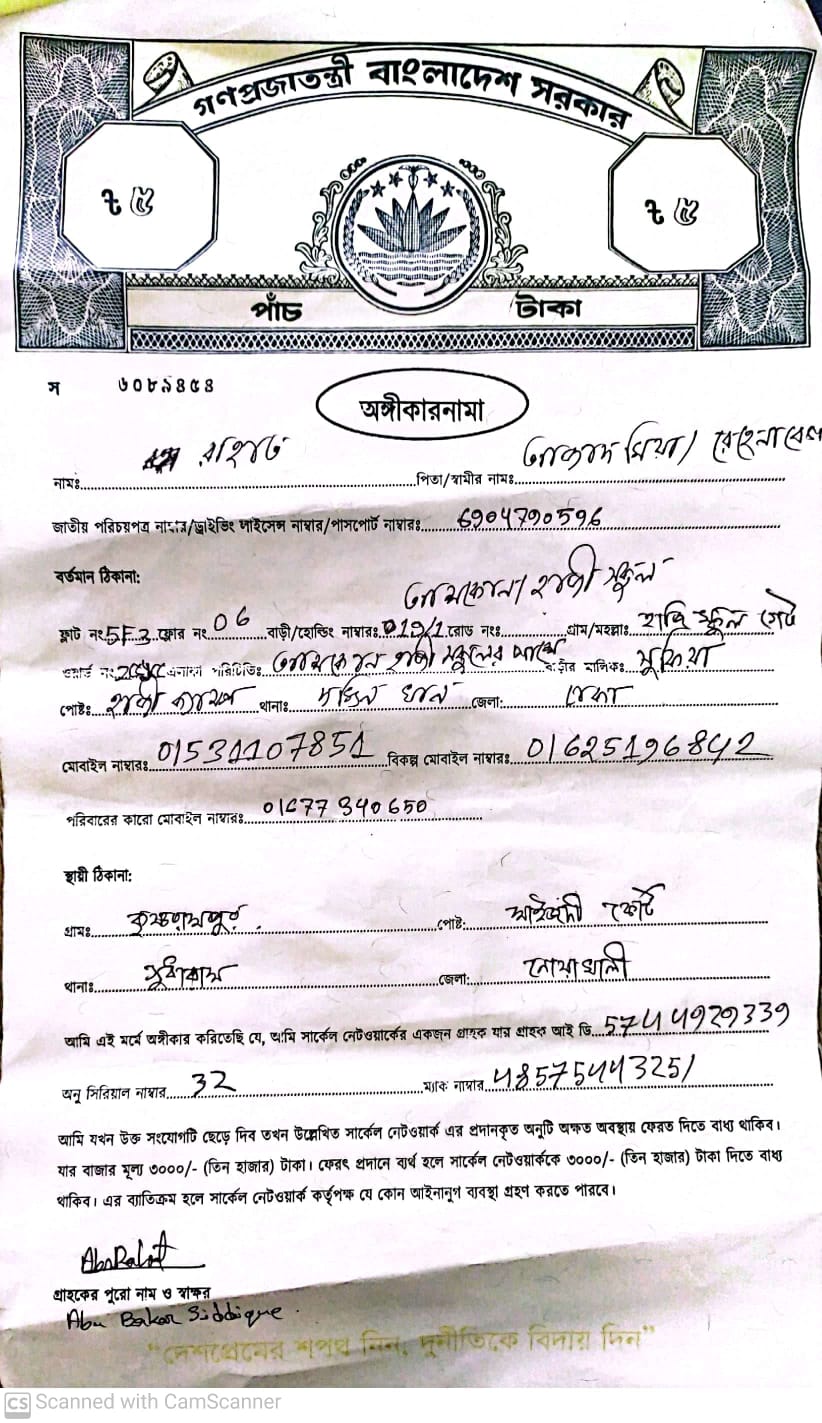 গণপ্রজাতন্ত্রী বাংলাদেশ সরকার
৳ ৫ ৳ ৫
পাঁচ টাকা
স ৬০৮৯৪৫৪
অঙ্গীকারনামা
নামঃ রাহাত পিতা/স্বামীর নামঃ মিয়া/
জাতীয় পরিচয়পত্র নাম্বার/ড্রাইভিং লাইসেন্স নাম্বার/পাসপোর্ট নাম্বারঃ 6904790596
বর্তমান ঠিকানা:
হাজী স্কুল
ফ্লাট নং 5F3 ফ্লোর নং 06 বাড়ী/হোল্ডিং নাম্বারঃ 019/1 রোড নংঃ গ্রাম/মহল্লাঃ হাজি স্কুল গেট
ওয়ার্ড নং এলাকা পরিচিতিঃ হাজী স্কুলের পাশে বাড়ীর মালিকঃ সুফিয়া
পোষ্টঃ হাজী ক্যাম্প থানাঃ দক্ষিন খান জেলা: ঢাকা
মোবাইল নাম্বারঃ 01531107851 বিকল্প মোবাইল নাম্বারঃ 01625196842
পরিবারের কারো মোবাইল নাম্বারঃ 01677340650
স্থায়ী ঠিকানা:
গ্রামঃ কৃষ্ণরামপুর পোষ্ট: মাইজদী কোর্ট
থানাঃ সুধারাম জেলা: নোয়াখালী
আমি এই মর্মে অঙ্গীকার করিতেছি যে, আমি সার্কেল নেটওয়ার্কের একজন গ্রাহক যার গ্রাহক আই ডি 5744929339
অনু সিরিয়াল নাম্বার 32 ম্যাক নাম্বার 48575444325/
আমি যখন উক্ত সংযোগটি ছেড়ে দিব তখন উল্লেখিত সার্কেল নেটওয়ার্ক এর প্রদানকৃত অনুটি অক্ষত অবস্থায় ফেরত দিতে বাধ্য থাকিব।
যার বাজার মূল্য ৩০০০/- (তিন হাজার) টাকা। ফেরৎ প্রদানে ব্যর্থ হলে সার্কেল নেটওয়ার্ককে ৩০০০/- (তিন হাজার) টাকা দিতে বাধ্য
থাকিব। এর ব্যতিক্রম হলে সার্কেল নেটওয়ার্ক কর্তৃপক্ষ যে কোন আইনানুগ ব্যবস্থা গ্রহণ করতে পারবে।
গ্রাহকের পুরো নাম ও স্বাক্ষর
Abu Bakar Siddique.
"দেশপ্রেমের শপথ নিন, দুর্নীতিকে বিদায় দিন"
CS Scanned with CamScanner